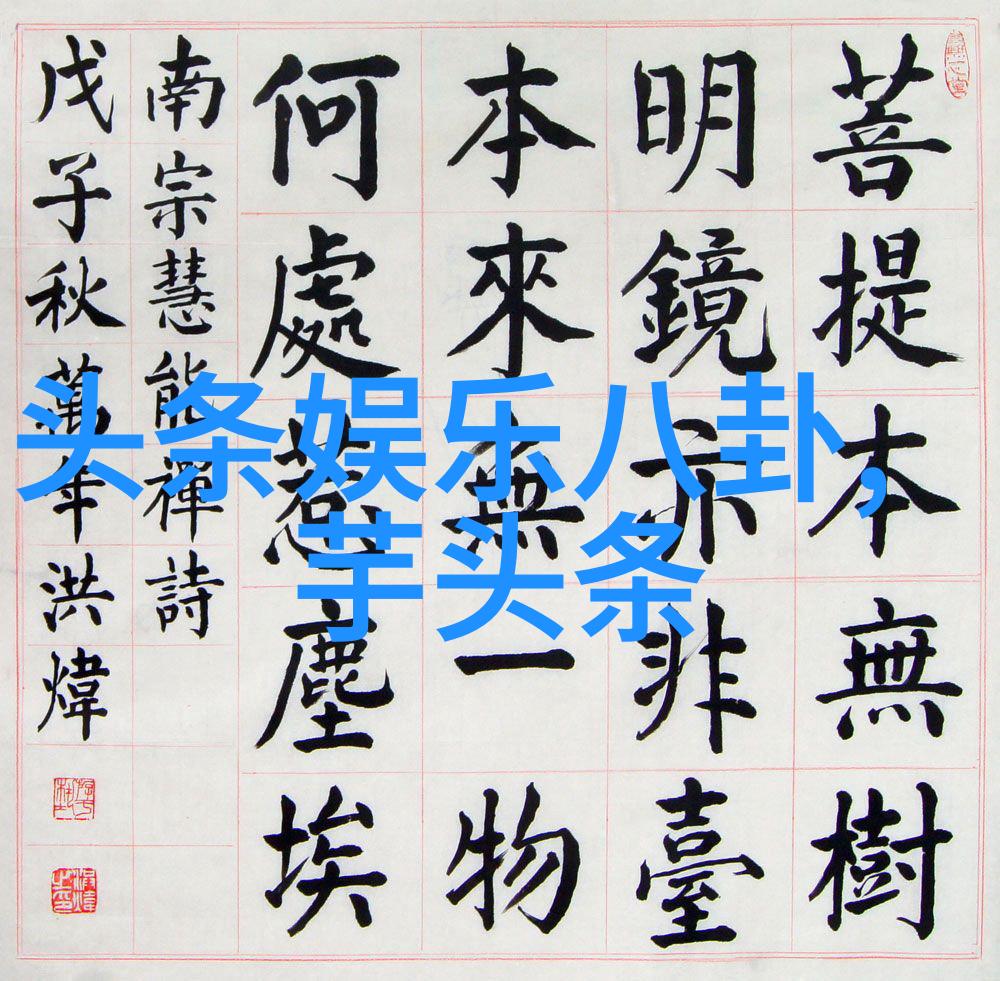 菩提本無樹
明鏡亦非臺
本來無一物
何處惹塵埃
南宗慧能禪詩
戊子秋萬年洪煒
头条娱乐八卦,
芋头条